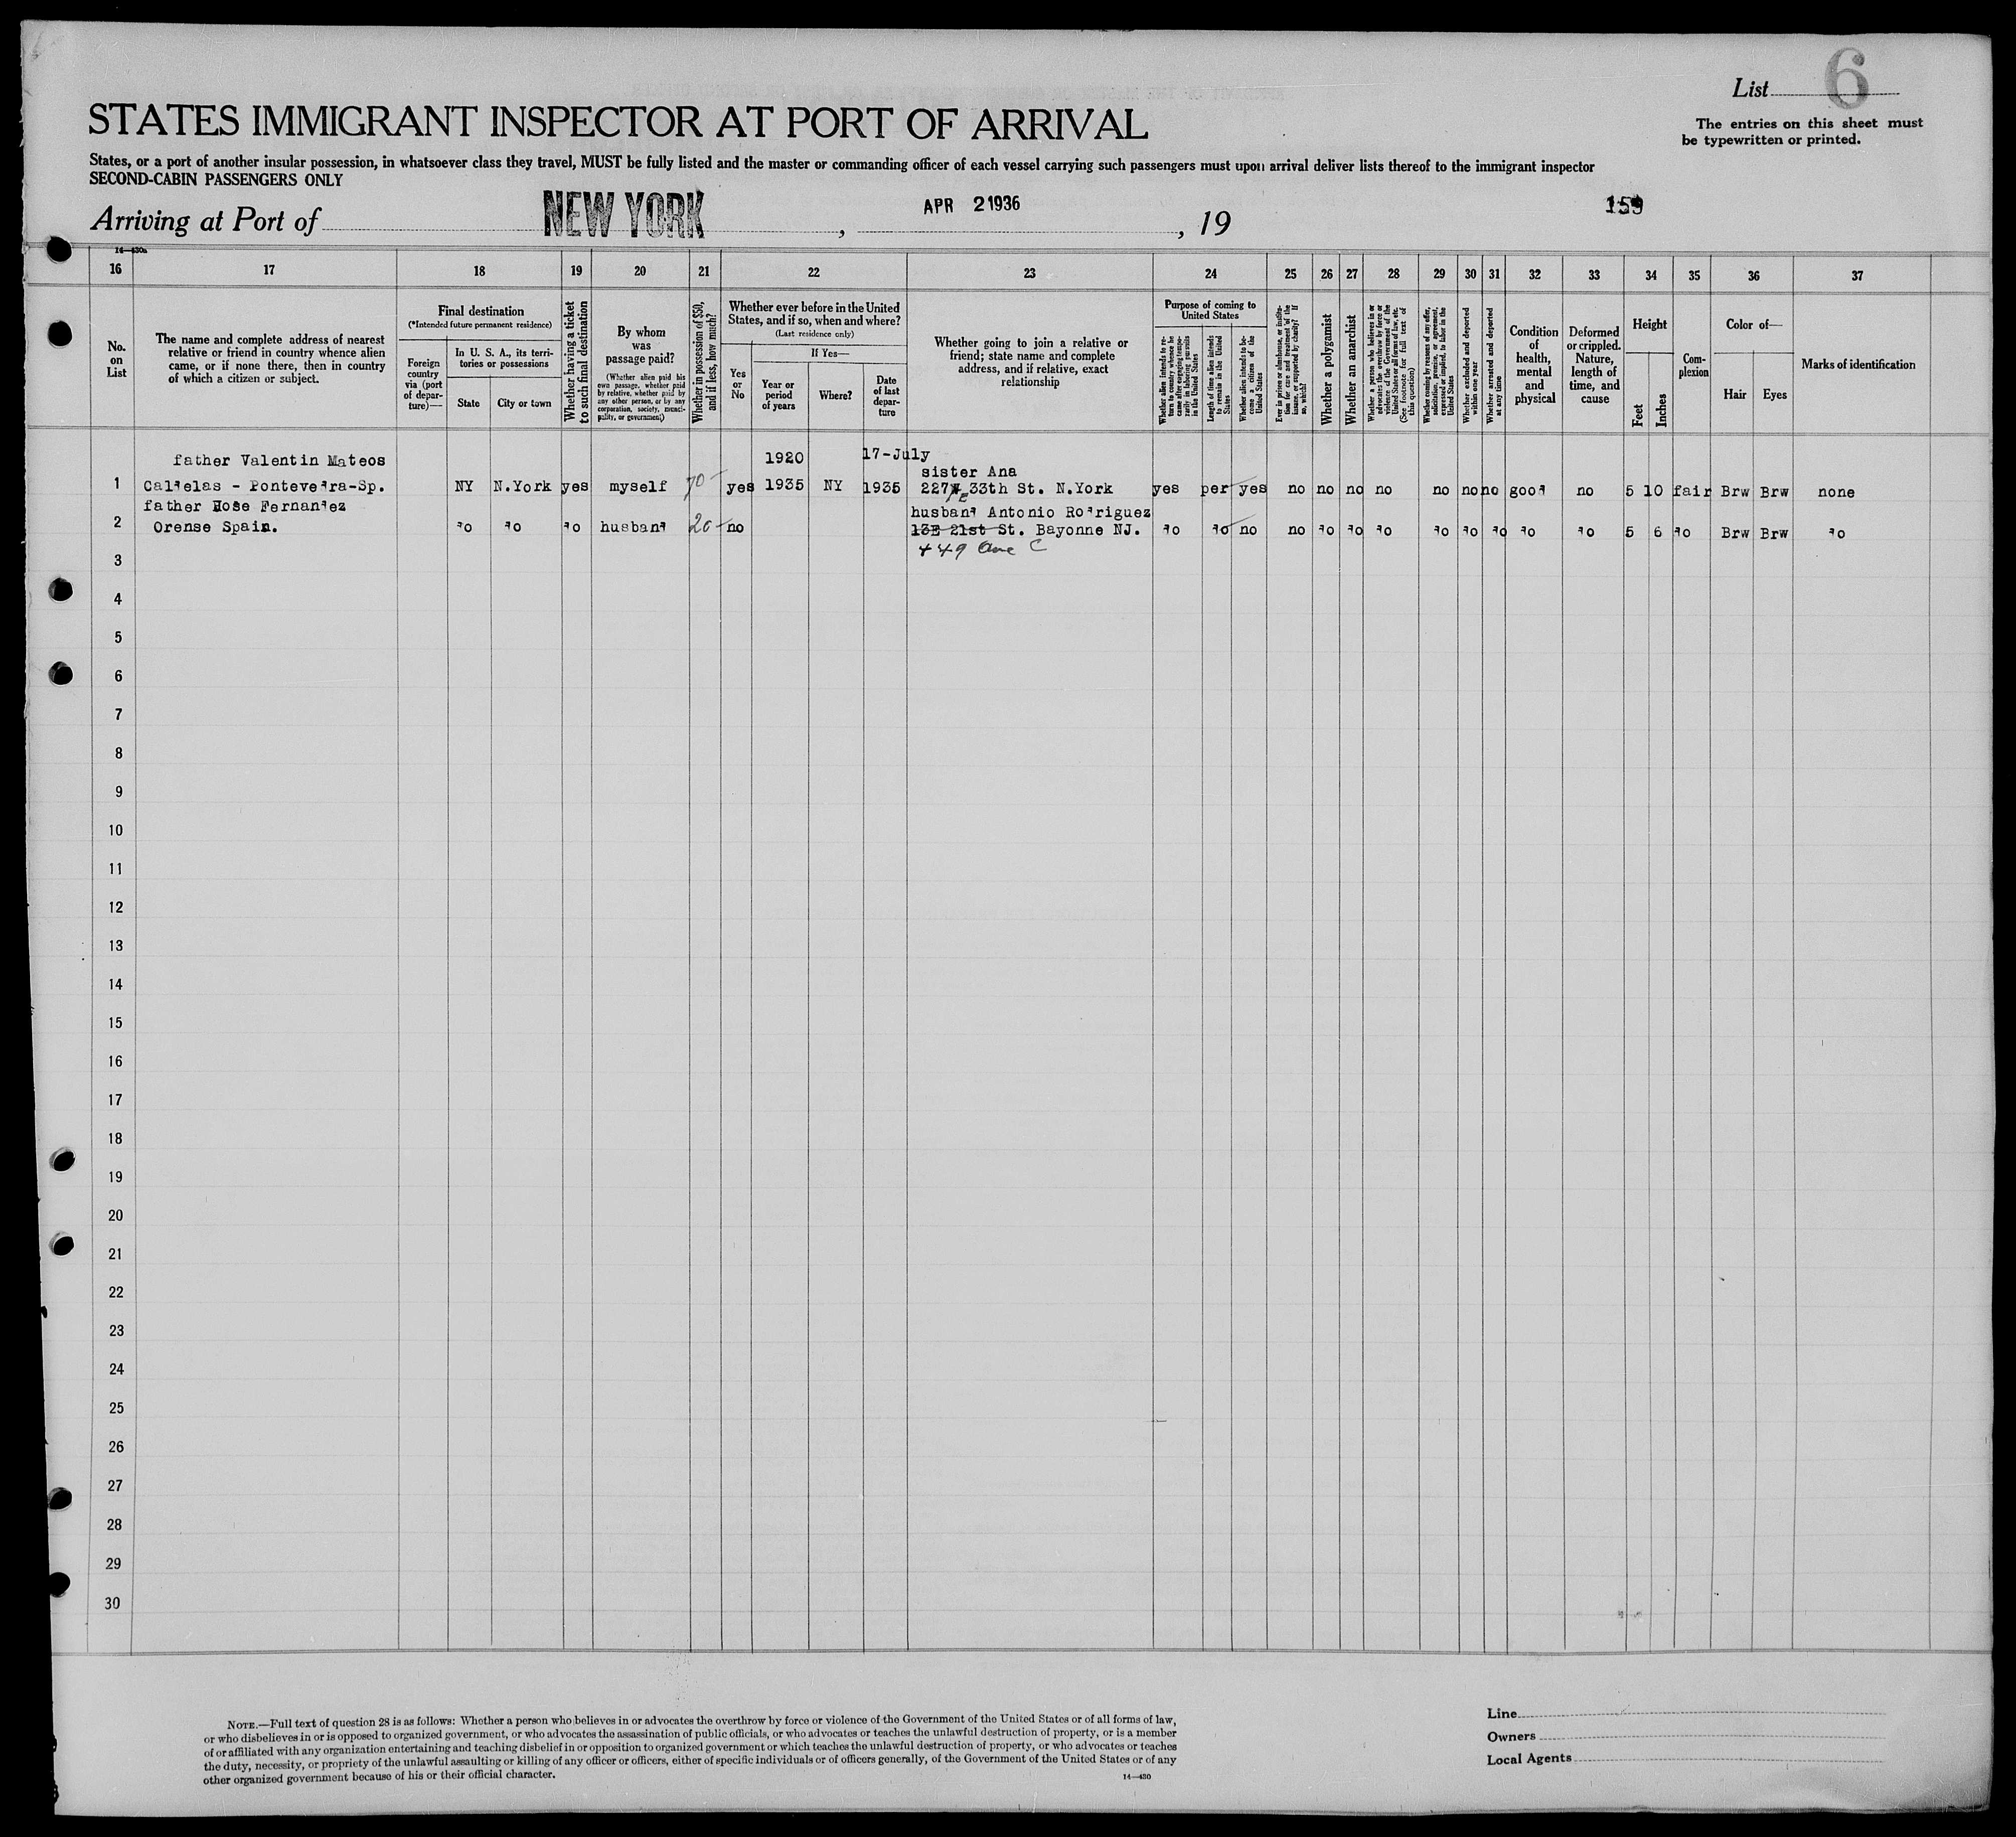 List 6
The entries on this sheet must
be typewritten or printed.
STATES IMMIGRANT INSPECTOR AT PORT OF ARRIVAL
States, or a port of another insular possession, in whatsoever class they travel, MUST be fully listed and the master or commanding officer of each vessel carrying such passengers must upon arrival deliver lists thereof to the immigrant inspector
SECOND-CABIN PASSENGERS ONLY
Arriving at Port of NEW YORK, APR 2 1936, 19
159
14—430a
16 17 18 19 20 21 22 23 24 25 26 27 28 29 30 31 32 33 34 35 36 37
No.
on
List
The name and complete address of nearest
relative or friend in country whence alien
came, or if none there, then in country
of which a citizen or subject.
Final destination
(*Intended future permanent residence)
Foreign
country
via (port
of depar-
ture)—
In U. S. A., its terri-
tories or possessions
State
City or town
Whether having a ticket
to such final destination
By whom
was
passage paid?
(Whether alien paid his
own passage, whether paid
by relative, whether paid by
any other person, or by any
corporation, society, munici-
pality, or government)
Whether in possession of $50,
and if less, how much?
Whether ever before in the United
States, and if so, when and where?
(Last residence only)
Yes
or
No
If Yes—
Year or
period
of years
Where?
Date
of last
depar-
ture
Whether going to join a relative or
friend; state name and complete
address, and if relative, exact
relationship
Purpose of coming to
United States
Whether alien intends to re-
turn to country whence he
came after engaging tempo-
rarily in laboring pursuits
in the United States
Length of time alien intends
to remain in the United
States
Whether alien intends to be-
come a citizen of the
United States
Ever in prison or almshouse, or institu-
tion for care and treatment of the
insane, or supported by charity? If
so, which?
Whether a polygamist
Whether an anarchist
Whether a person who believes in or
advocates the overthrow by force or
violence of the Government of the
United States or all forms of law, etc.
(See footnote for full text of
this question)
Whether coming by reason of any offer,
solicitation, promise, or agreement,
expressed or implied, to labor in the
United States
Whether excluded and deported
within one year
Whether arrested and deported
at any time
Condition
of
health,
mental
and
physical
Deformed
or crippled.
Nature,
length of
time, and
cause
Height
Feet
Inches
Com-
plexion
Color of—
Hair
Eyes
Marks of identification
father Valentin Mateos 1920 17-July sister Ana
1 Caldelas - Pontevedra-Sp. NY N.York yes myself 70- yes 1935 NY 1935 227 E 33th St. N.York yes per yes no no no no no no no good no 5 10 fair Brw Brw none
father Jose Fernandez husband Antonio Rodriguez
2 Orense Spain. do do do husband 20- no 13E 21st St. Bayonne NJ. do do no no do do do do do do do do 5 6 do Brw Brw do
449 Ave C
3
4
5
6
7
8
9
10
11
12
13
14
15
16
17
18
19
20
21
22
23
24
25
26
27
28
29
30
NOTE.—Full text of question 28 is as follows: Whether a person who believes in or advocates the overthrow by force or violence of the Government of the United States or of all forms of law,
or who disbelieves in or is opposed to organized government, or who advocates the assassination of public officials, or who advocates or teaches the unlawful destruction of property, or is a member
of or affiliated with any organization entertaining and teaching disbelief in or opposition to organized government or which teaches the unlawful destruction of property, or who advocates or teaches
the duty, necessity, or propriety of the unlawful assaulting or killing of any officer or officers, either of specific individuals or of officers generally, of the Government of the United States or of any
other organized government because of his or their official character.
14—430
Line
Owners
Local Agents